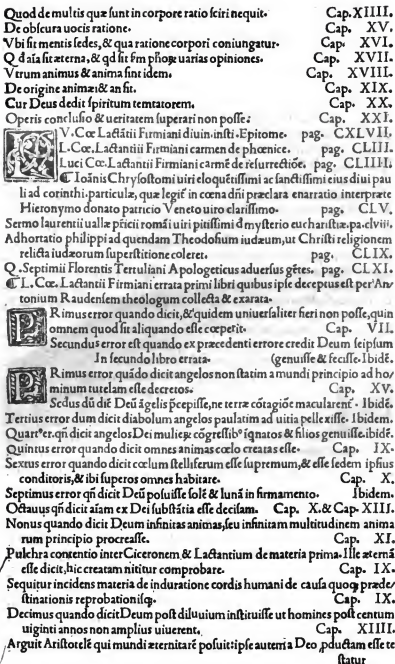 Quod de multis quæ sunt in corpore ratio sciri nequit. Cap. XIIII.
De obscura uocis ratione. Cap. XV.
Vbi sit mentis sedes, & qua ratione corpori coniungatur. Cap. XVI.
Q d aïa sit æterna, & qd sit fm phoꝝ uarias opiniones. Cap. XVII.
Vtrum animus & anima sint idem. Cap. XVIII.
De origine animæ: & an sit. Cap. XIX.
Cur Deus dedit spiritum temtatorem. Cap. XX.
Operis conclusio & ueritatem superari non posse: Cap. XXI.
V. Cœ Lactãtii Firmiani diuin. insti. Epitome. pag. CXLVII.
L. Cœ. Lactantiii Firmiani carmen de phœnice. pag. CLIII.
Luci Cœ. Lactantii Firmiani carmẽ de resurrectiõe. pag. CLIIII.
¶ Ioãnis Chrysostomi uiri eloquẽtissimi ac sanctissimi eius diui pau
li ad corinthi. particulæ, quæ legit in cœna dñi præclara enarratio interprete
Hieronymo donato patricio Veneto uiro clarissimo. pag. CLV.
Sermo laurentii uallæ pricii romãi uiri pitissimi d mysterio eucharistiæ. pa. clviii.
Adhortatio philippi ad quendam Theodosium iudæum, ut Christi religionem
relicta iudæorum superstitione coleret. pag. CLIX.
Q. Septimii Florentis Tertuliani Apologeticus aduersus gẽtes. pag. CLXI.
¶ L. Cœ. Lactantii Firmiani errata primi libri quibus ipse deceptus est per An/
tonium Raudensem theologum collecta & exarata.
PRimus error quando dicit, & quidem uniuersaliter fieri non posse, quin
omnem quod sit aliquando esse cœperit. Cap. VII.
Secundus error est quando ex præcedenti errore credit Deum seipsum
In secundo libro errata. (genuisse & fecisse. Ibidẽ.
PRimus error quãdo dicit angelos non statim a mundi principio ad ho/
minum tutelam esse decretos. Cap. XV.
Sedus dũ diẽ Deũ ãgelis pcepisse, ne terræ cõtagiõe macularent. Ibidẽ.
Tertius error dum dicit diabolum angelos paulatim ad uitia pellexisse. Ibidem.
Quart⁹ er. qñ dicit angelos Dei mulieꝝ cõgressib⁹ ignatos & filios genuisse. ibidẽ.
Quintus error quando dicit omnes animas cœlo creatas esse. Cap. IX.
Sextus error quando dicit cœlum stelliferum esse supremum, & esse sedem ipsius
conditoris, & ibi superos omnes habitare. Cap. X.
Septimus error qñ dicit Deũ posuisse solẽ & lunã in firmamento. Ibidem.
Octauus qñ dicit aïam ex Dei substãtia esse decisam. Cap. X. & Cap. XIII.
Nonus quando dicit Deum infinitas animas, seu infinitam multitudinem anima
rum principio procreasse. Cap. XI.
Pulchra contentio inter Ciceronem & Lactantium de materia prima. Ille æternã
esse dicit, hic creatam nititur comprobare. Cap. IX.
Sequitur incidens materia de induratione cordis humani de causa quoqꝫ præde/
stinationis reprobationisqꝫ. Cap. IX.
Decimus quando dicit Deum post diluuium instituisse ut homines post centum
uiginti annos non amplius uiuerent. Cap. XIIII.
Arguit Aristotelẽ qui mundi æternitatẽ posuit: ipse autem a Deo pductam esse te
statur